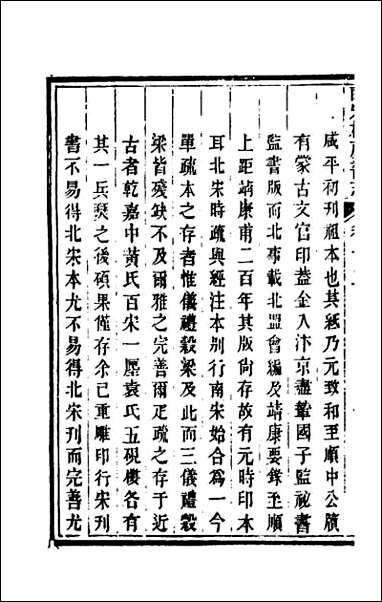 咸平初刊祖本也其紙乃元致和至順中公牘
有蒙古文官印葢金入汴京盡輦國子監祕書
監書版而北事載北盟會編及靖康要錄至順
上距靖康甫二百年其版尙存故有元時印本
耳北宋時疏與經注本別行南宋始合爲一今
單疏本之存者惟儀禮穀梁及此而三儀禮穀
梁皆殘缺不及爾雅之完善爾疋疏之存于近
古者乾嘉中黃氏百宋一廛袁氏五硯樓各有
其一兵燹之後碩果僅存余已重雕印行宋刋
書不易得北宋本尤不易得北宋刋而完善尤